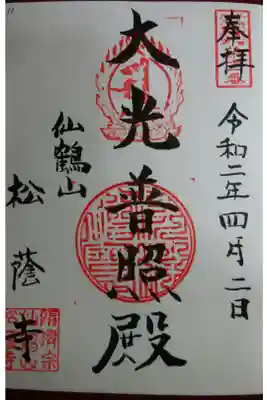 奉拝
令和二年四月二日
大光普照殿
仙鶴山
松蔭寺